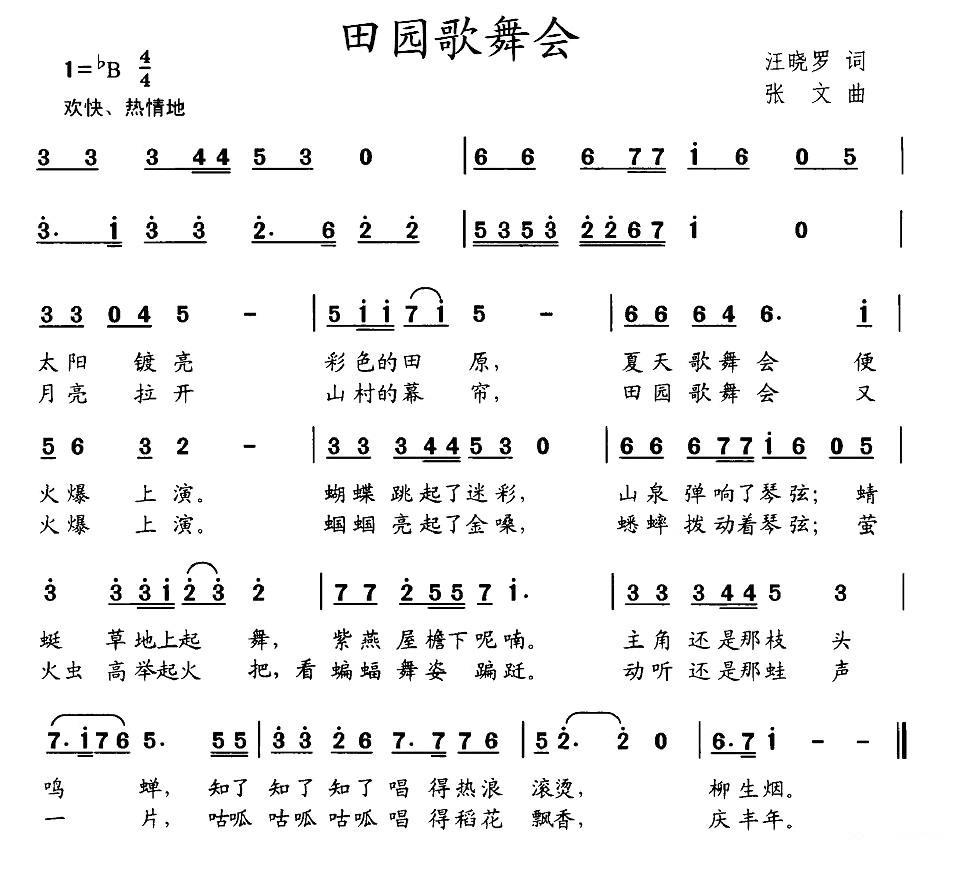 田园歌舞会
1=♭B 4/4
汪晓罗 词
欢快、热情地
张 文 曲
3 3 3 4 4 5 3 0 | 6 6 6 7 7 i 6 0 5 |
3. i 3 3 2. 6 2 2 | 5 3 5 3 2 2 6 7 i 0 |
3 3 0 4 5 - | 5 i i 7 i 5 - | 6 6 6 4 6. i |
太阳 镀亮 彩色的田 原， 夏天歌舞会 便
月亮 拉开 山村的幕 帘， 田园歌舞会 又
5 6 3 2 - | 3 3 3 4 4 5 3 0 | 6 6 6 7 7 i 6 0 5 |
火爆 上演。 蝴蝶 跳起了迷彩， 山泉 弹响了琴弦； 蜻
火爆 上演。 蝈蝈 亮起了金嗓， 蟋蟀 拨动着琴弦； 萤
3 3 3 i 2 3 2 | 7 7 2 5 5 7 i. | 3 3 3 4 4 5 3 |
蜓 草地上起 舞， 紫燕 屋檐下呢喃。 主角 还是那枝 头
火虫 高举起火 把，看 蝙蝠 舞姿 蹁跹。 动听 还是那蛙 声
7. i 7 6 5. 5 5 | 3 3 2 6 7. 7 7 6 | 5 2. 2 0 | 6. 7 i - - ‖
鸣 蝉， 知了 知了 知了 唱 得热浪 滚烫， 柳生烟。
一 片， 咕呱 咕呱 咕呱 唱 得稻花 飘香， 庆丰年。